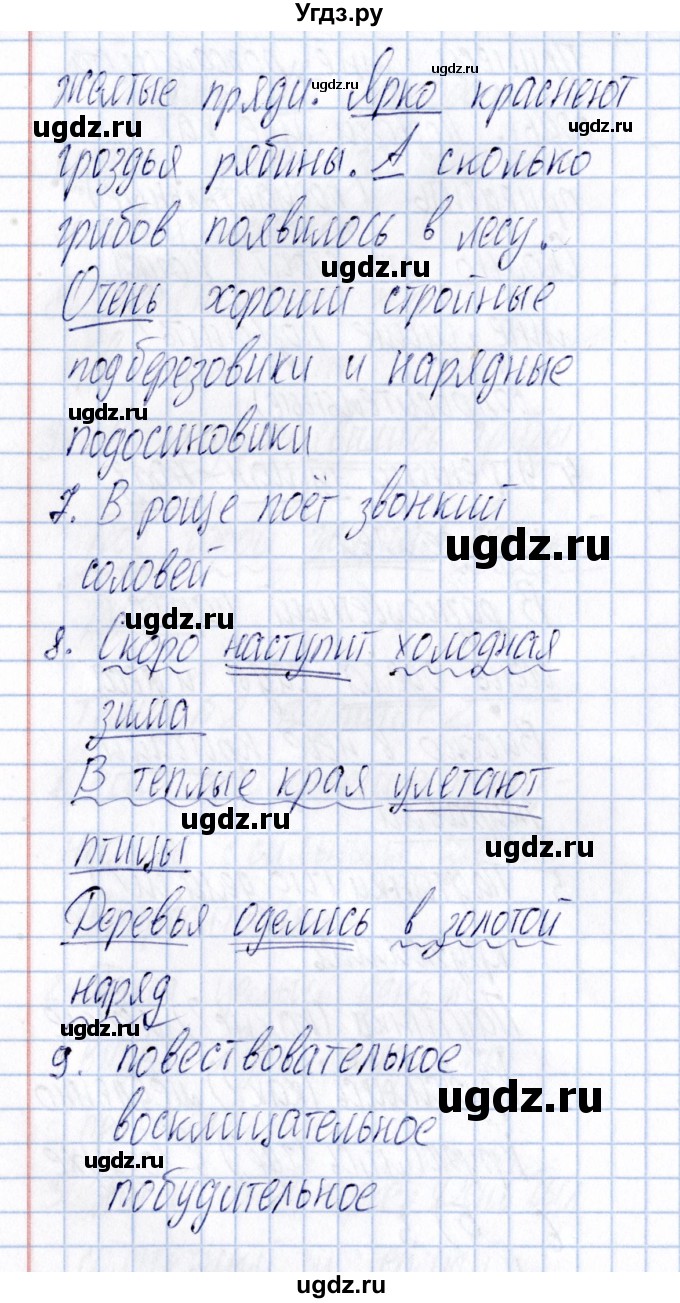 Угдз.ру
желтые пряди. Ярко краснеют
ugdz.ru
ugdz.ru
ugdz.ru
гроздья рябины. А сколько
грибов появилось в лесу.
ugdz.ru
Очень хороши стройные
подберезовики и нарядные
ugdz.ru
подосиновики
7. В роще поёт звонкий
ugdz.ru
соловей
ugdz.ru
8. Скоро наступит холодная
зима
В теплые края улетают
ugdz.ru
ugdz.ru
птицы
Деревья оделись в золотой
наряд
ugdz.ru
9. повествовательное
ugdz.ru
восклицательное
ugdz.ru
побудительное
ugdz.ru